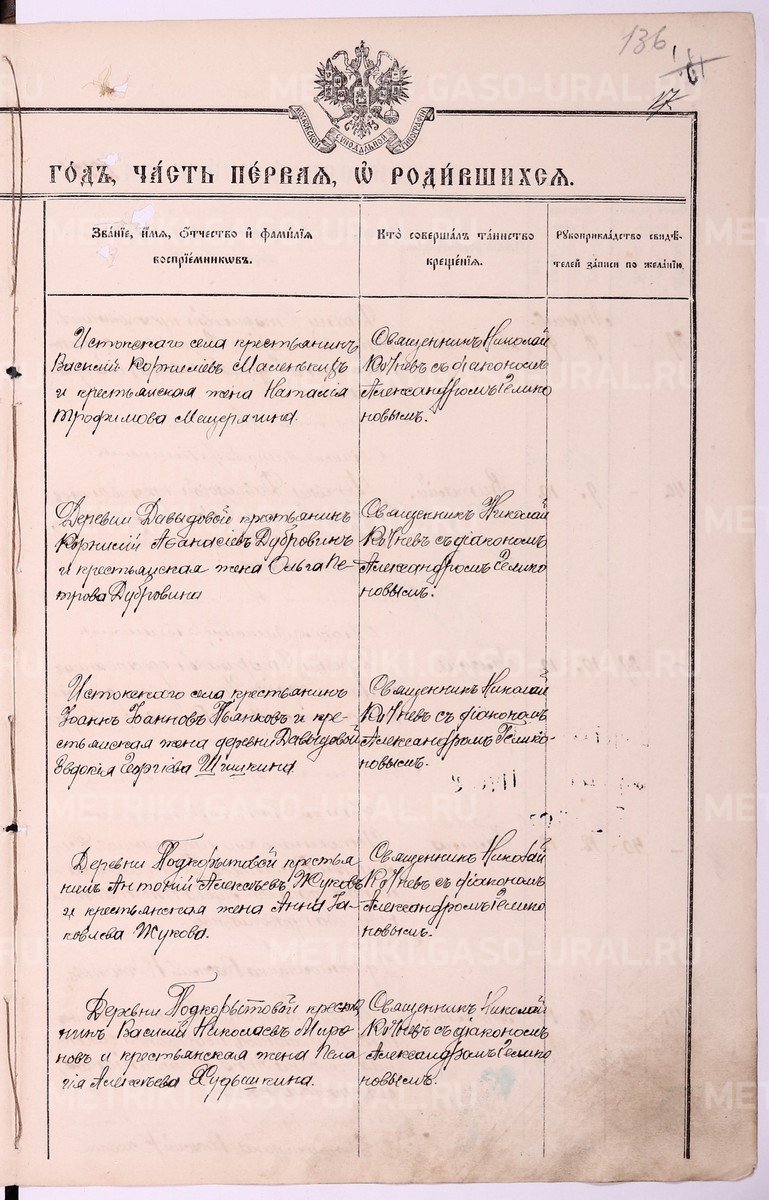 136
17.
МОСКОВСКОЙ СУНОДАЛЬНОЙ ТИПОГРАФІИ
ГО́ДЪ, ЧА́СТЬ ПЕ́РВАЯ, Ѽ РОДИ́ВШИХСЯ.
Зва́нїе, и́мя, ѻ́тчество и҆ фами́лїя
воспрїе́мникѡвъ.
Кто̀ соверша́лъ та́инство
креще́нїя.
Рꙋкоприкла́дство свидѣ́-
телей за́писи по жела́нїю.
Истокскаго села крестьянинъ
Василій Корнилiевъ Маленькихъ
и крестьянская жена Наталія
Трофимова Мещерягина.
Священникъ Николай
съ діакономъ
Александромъ Гелико
новымъ.
Деревни Давыдовой крестьянинъ
Корнилій Аѳанасіевъ Дубровинъ
и крестьянская жена Ольга Пе-
трова Дубровина
Священникъ Николай
съ діакономъ
Александромъ Гелико
новымъ.
Истокскаго села крестьянинъ
Іоаннъ Іоанновъ Пьянковъ и кре-
стьянская жена деревни Давыдовой
Евдокія Георгіева Шишкина.
Священникъ Николай
съ діакономъ
Александромъ Гелико-
новымъ.
Деревни Подкорытовой крестья
нинъ Антоній Алексѣевъ Жуковъ
и крестьянская жена Анна Іа-
ковлева Жукова.
Священникъ Николай
съ діакономъ
Александромъ Гелико
новымъ.
Деревни Подкорытовой крестья
нинъ Василій Николаевъ Миро-
новъ и крестьянская жена Пела
гія Алексѣева Худышкина.
Священникъ Николай
съ діакономъ
Александромъ Гелико
новымъ.
METRIKI.GASO-URAL.RU